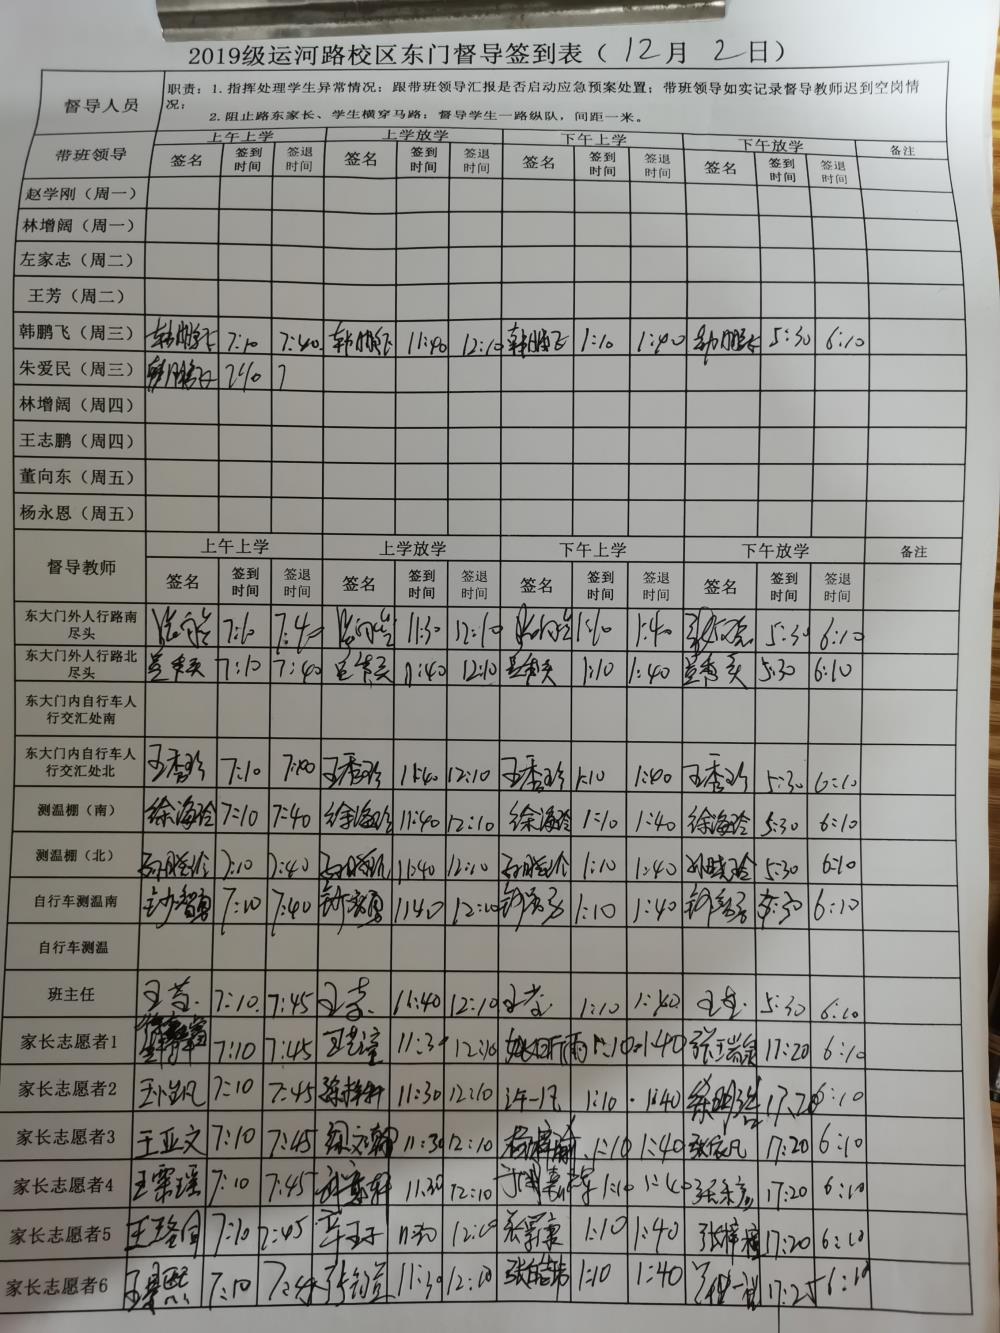 2019级运河路校区东门督导签到表（12月2日）
督导人员 职责：1.指挥处理学生异常情况；跟带班领导汇报是否启动应急预案处置；带班领导如实记录督导教师迟到空岗情
况；
2.阻止路东家长、学生横穿马路；督导学生一路纵队，间距一米。
带班领导 上午上学 上学放学 下午上学 下午放学 备注
签名 签到时间 签退时间 签名 签到时间 签退时间 签名 签到时间 签退时间 签名 签到时间 签退时间
赵学刚（周一）
林增阔（周一）
左家志（周二）
王芳（周二）
韩鹏飞（周三） 韩鹏飞 7:10 7:40 韩鹏飞 11:40 12:10 韩鹏飞 1:10 1:40 韩鹏飞 5:30 6:10
朱爱民（周三） 韩鹏飞
林增阔（周四）
王志鹏（周四）
董向东（周五）
杨永恩（周五）
督导教师 上午上学 上学放学 下午上学 下午放学 备注
签名 签到时间 签退时间 签名 签到时间 签退时间 签名 签到时间 签退时间 签名 签到时间 签退时间
东大门外人行路南尽头 7:10 7:40 11:30 12:10 1:10 1:40 5:30 6:10
东大门外人行路北尽头 7:10 7:40 11:40 12:10 1:10 1:40 5:30 6:10
东大门内自行车人行交汇处南
东大门内自行车人行交汇处北 王秀珍 7:10 王秀珍 11:40 12:10 王秀珍 1:10 1:40 王秀珍 5:30 6:10
测温棚（南） 徐海玲 7:10 7:40 徐海玲 11:40 12:10 徐海玲 1:10 1:40 徐海玲 5:30 6:10
测温棚（北） 7:10 7:40 11:40 12:10 1:10 1:40 5:30 6:10
自行车测温南 7:10 7:40 11:40 12:10 1:10 1:40 5:30 6:10
自行车测温
班主任 7:10 7:45 11:40 12:10 1:10 1:40 5:30 6:10
家长志愿者1 7:10 7:45 11:30 12:10 1:10 1:40 17:20 6:10
家长志愿者2 7:10 7:45 11:30 12:10 许一凡 1:10 1:40 17:20 6:10
家长志愿者3 王亚文 7:10 7:45 11:30 12:10 1:10 1:40 17:20 6:10
家长志愿者4 7:10 7:45 11:30 12:10 1:10 1:40 17:20 6:10
家长志愿者5 7:10 7:45 11:30 12:10 1:10 1:40 17:20 6:10
家长志愿者6 7:10 11:30 12:10 1:10 1:40 17:25 6:10